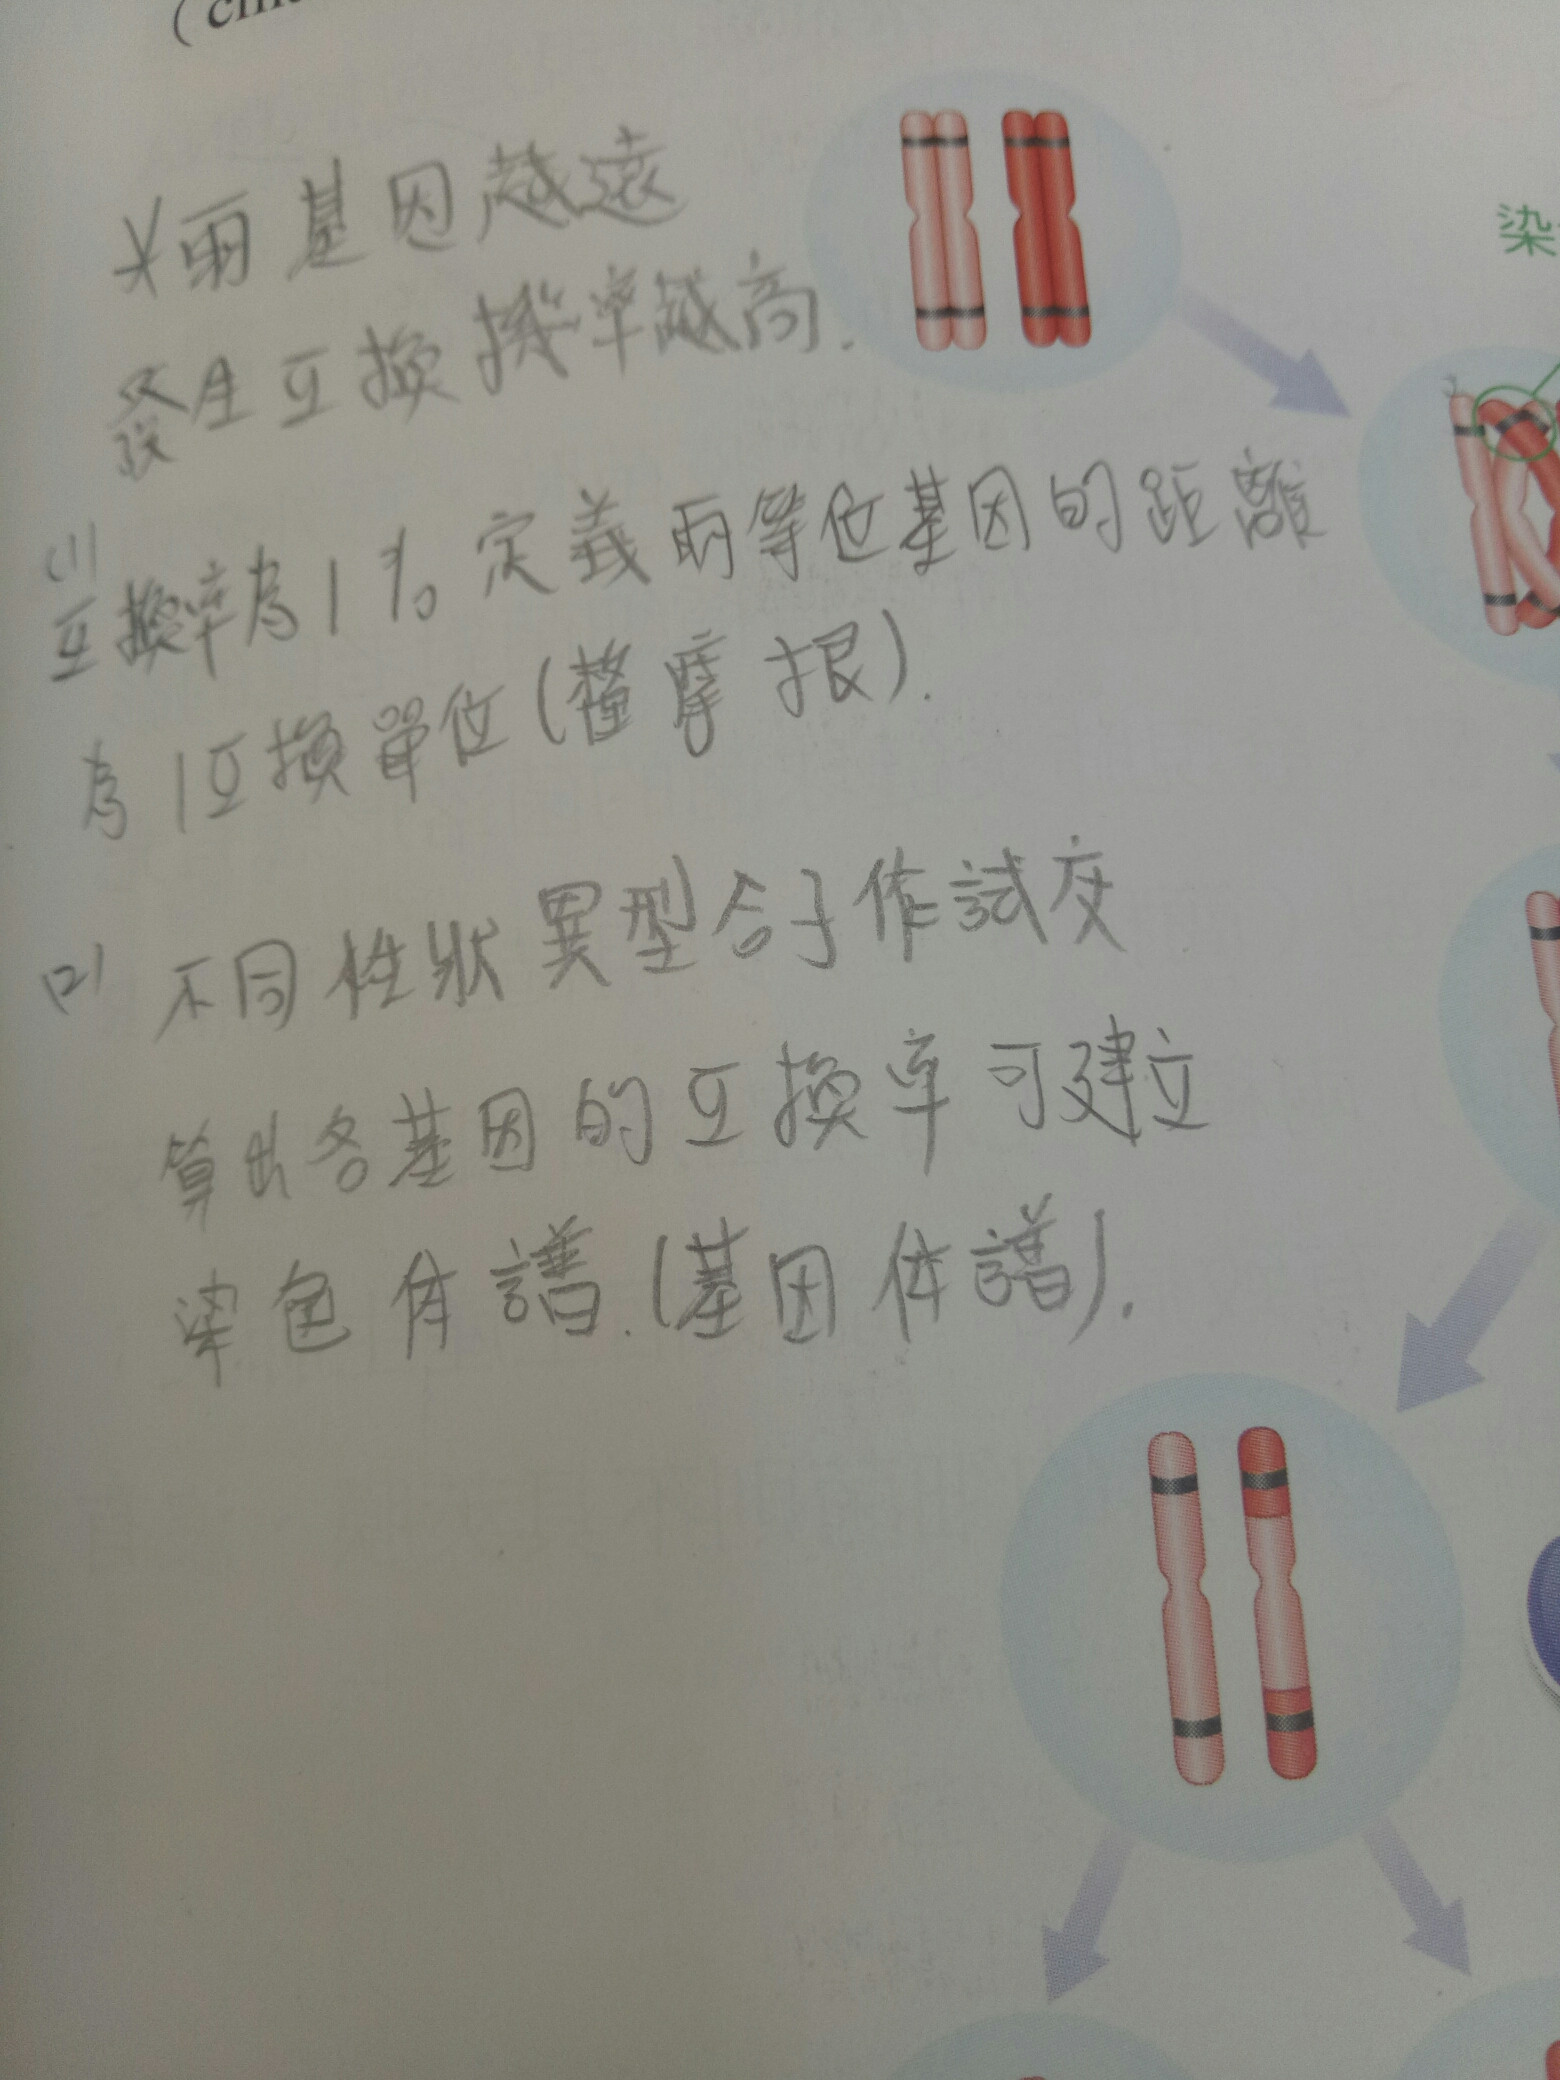 (chi
※兩基因越遠
發生互換機率越高.
染
(1)
互換率為1%定義兩等位基因的距離
為1互換單位(釐摩根).
(2) 不同性狀異型合子作試交
算出各基因的互換率可建立
染色体譜.(基因体譜).